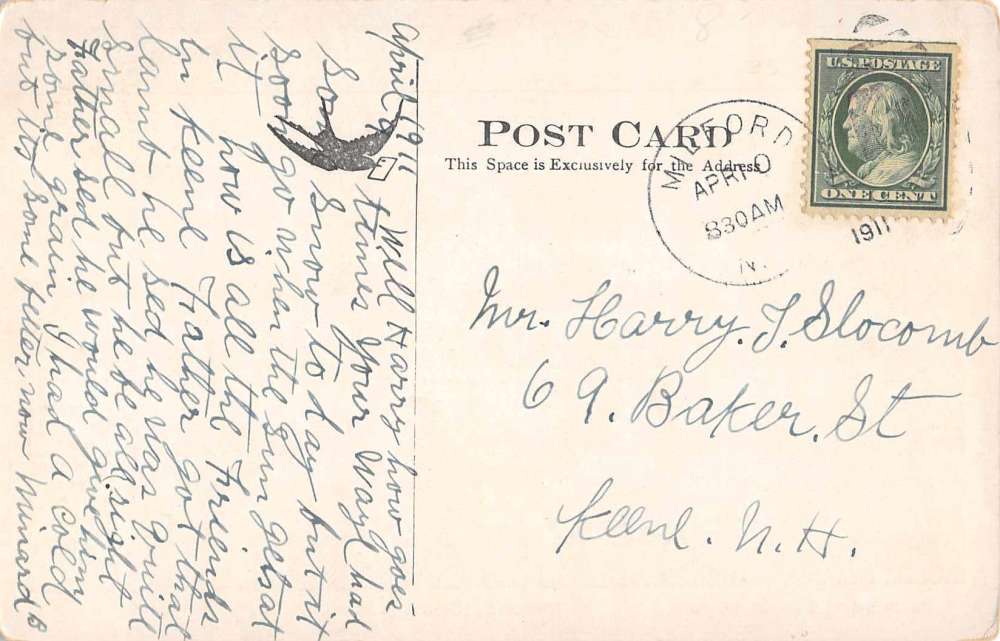 April 9 1911
Well Harry how goes
times your way had
som snow to day but it
soon go when the sun gets at
it how is all the friends
in Keene Father got that
he sed he was
small but he be all right
Father sed he would give him
some grain I had a cold
but its some better now Minard B
POST CARD
This Space is Exclusively for the Address
MILFORD
APR 10
830AM
1911
N.
U.S. POSTAGE
ONE CENT
Mr. Harry J. Slocomb
69. Baker. St
Keene. N.H.